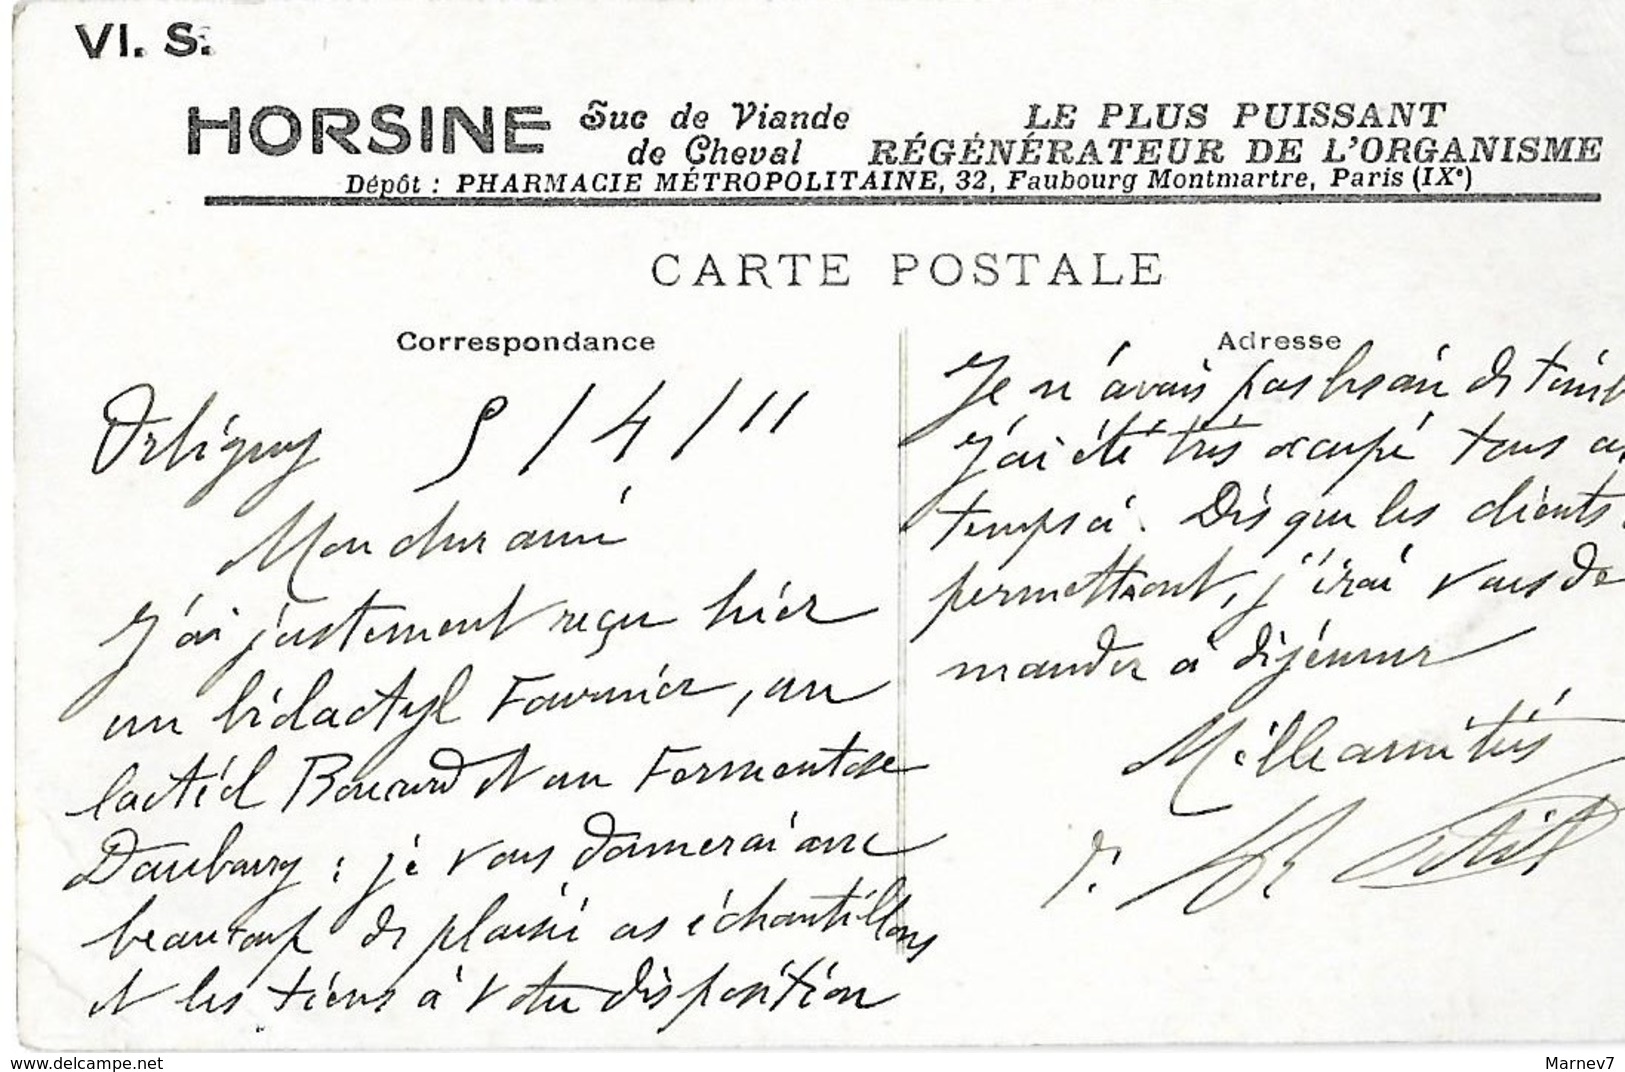 VI. S.
HORSINE Suc de Viande de Cheval
LE PLUS PUISSANT
RÉGÉNÉRATEUR DE L'ORGANISME
Dépôt : PHARMACIE MÉTROPOLITAINE, 32, Faubourg Montmartre, Paris (IXe)
CARTE POSTALE
Correspondance
Orbigny 5/4/11
Mon cher ami
J'ai justement reçu hier
un bidactyl Fournier, un
lactéol Boucard et un Fermentose
Daubourg : je vous donnerai avec
beaucoup de plaisir ces échantillons
et les tiens à votre disposition
Adresse
Je n'avais pas besoin de timb
J'ai été très occupé tous ces
temps ci. Dès que les clients
permettront, j'irai vous de
mander à déjeuner
Mille amitiés
Marnev7
www.delcampe.net